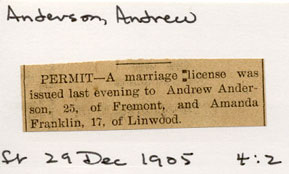 Anderson, Andrew
PERMIT—A marriage license was
issued last evening to Andrew Ander-
son, 25, of Fremont, and Amanda
Franklin, 17, of Linwood.
St 29 Dec 1905 4:2